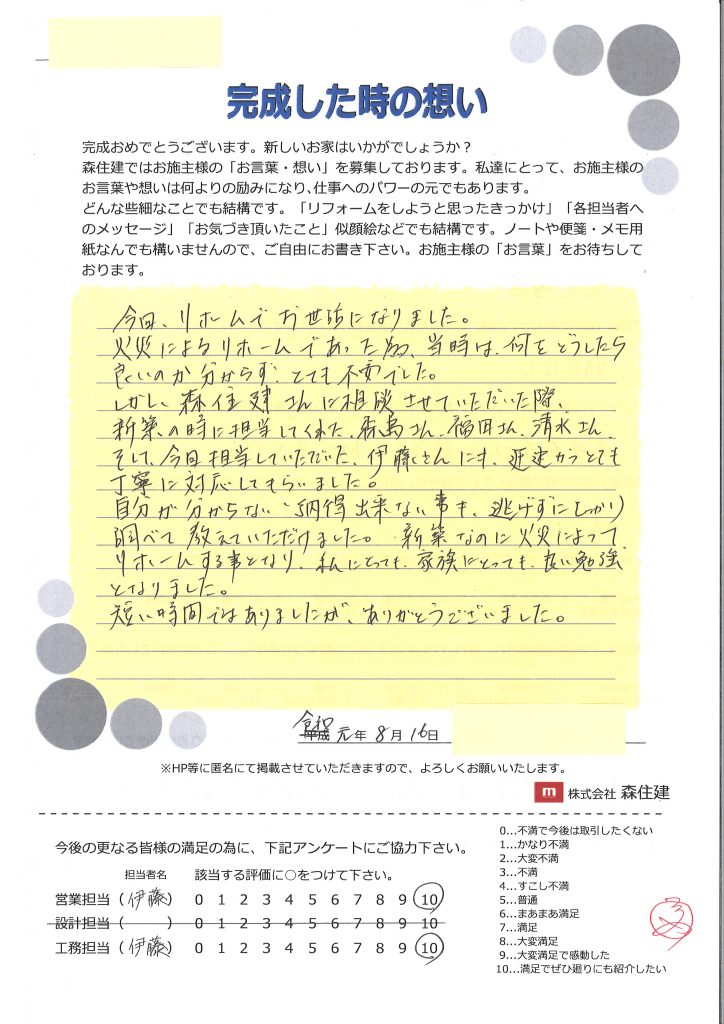 完成した時の想い
完成おめでとうございます。新しいお家はいかがでしょうか？
森住建ではお施主様の「お言葉・想い」を募集しております。私達にとって、お施主様の
お言葉や想いは何よりの励みになり、仕事へのパワーの元でもあります。
どんな些細なことでも結構です。「リフォームをしようと思ったきっかけ」「各担当者へ
のメッセージ」「お気づき頂いたこと」似顔絵などでも結構です。ノートや便箋・メモ用
紙なんでも構いませんので、ご自由にお書き下さい。お施主様の「お言葉」をお待ちして
おります。
今回、リホームでお世話になりました。
火災によるリホームであった為、当時は、何をどうしたら
良いのか分からず、とても不安でした。
しかし、森住建さんに相談させていただいた際、
新築の時に担当してくれた、森島さん、福田さん、清水さん、
そして、今回担当していただいた、伊藤さんにも、迅速かつとても
丁寧に対応してもらいました。
自分が分からない、納得出来ない事も、逃げずにしっかり
調べて教えていただけました。新築なのに火災によって、
リホームする事となり、私にとっても、家族にとっても、良い勉強
となりました。
短い時間ではありましたが、ありがとうございました。
令和
平成 元年 8月 16日
※HP等に匿名にて掲載させていただきますので、よろしくお願いいたします。
m 株式会社 森住建
今後の更なる皆様の満足の為に、下記アンケートにご協力下さい。
担当者名 該当する評価に○をつけて下さい。
営業担当（伊藤） 0 1 2 3 4 5 6 7 8 9 10
設計担当（ ） 0 1 2 3 4 5 6 7 8 9 10
工務担当（伊藤） 0 1 2 3 4 5 6 7 8 9 10
0…不満で今後は取引したくない
1…かなり不満
2…大変不満
3…不満
4…すこし不満
5…普通
6…まあまあ満足
7…満足
8…大変満足
9…大変満足で感動した
10…満足でぜひ廻りにも紹介したい